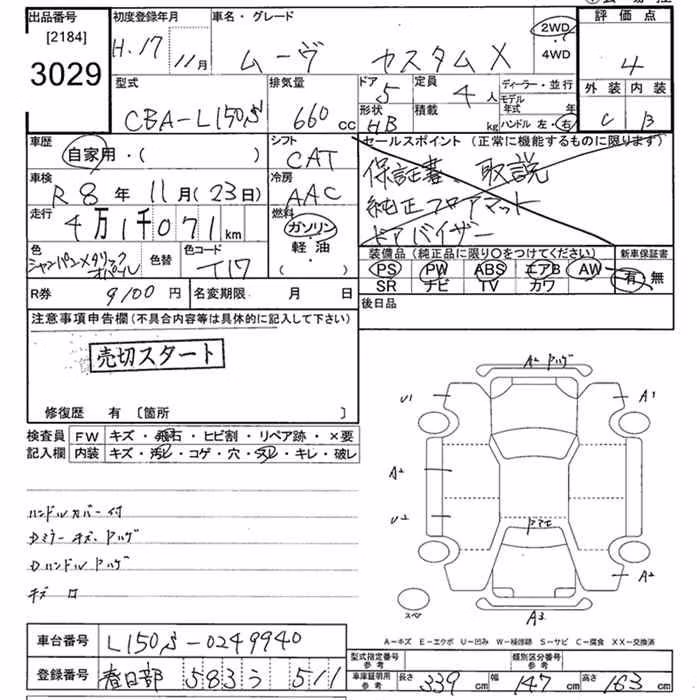 出品番号
[2184]
3029
初度登録年月
H.17 11月
車名・グレード
ムーヴ カスタムX
2WD
4WD
評価点
4
外装 内装
B
型式
CBA-L150S
排気量
660 cc
ドア
5
形状
HB
定員
4 人
積載
kg
ディーラー・並行
モデル年式 年
ハンドル 左・右
車歴
自家用・( )
シフト
CAT
車検
R8年11月(23日)
冷房
AAC
走行
4万1千071km
燃料
ガソリン
軽・油
・( )
色
シャンパンメタリックオパール
色替
色コード
T17
セールスポイント (正常に機能するものに限ります)
保証書 取説
純正フロアマット
ドアバイザー
装備品 (純正品に限り〇をつけてください)
PS PW ABS エアB AW
SR ナビ TV カワ
新車保証書
有・無
R券 9100円
名変期限 月 日
後日品
注意事項申告欄(不具合内容等は具体的に記入して下さい)
売切スタート
修復歴 有 [箇所 ]
検査員
記入欄
FW キズ・飛石・ヒビ割・リペア跡・×要
内装 キズ・汚レ・コゲ・穴・スレ・キレ・破レ
ハンドルカバー付
Dミラーキズ、ハゲ
Dハンドルハゲ
A2 ハゲ
U1
A1
A2
U2
A2
A3
スペア
A-キズ E-エクボ U-凹み W-補修跡 S-サビ C-腐食 XX-交換済
車台番号 L150S-0249940
登録番号 春日部 583 う 511
型式指定番号
参考
類別区分番号
参考
車庫証明用
参考
長さ 339cm 幅 147cm 高さ 163cm